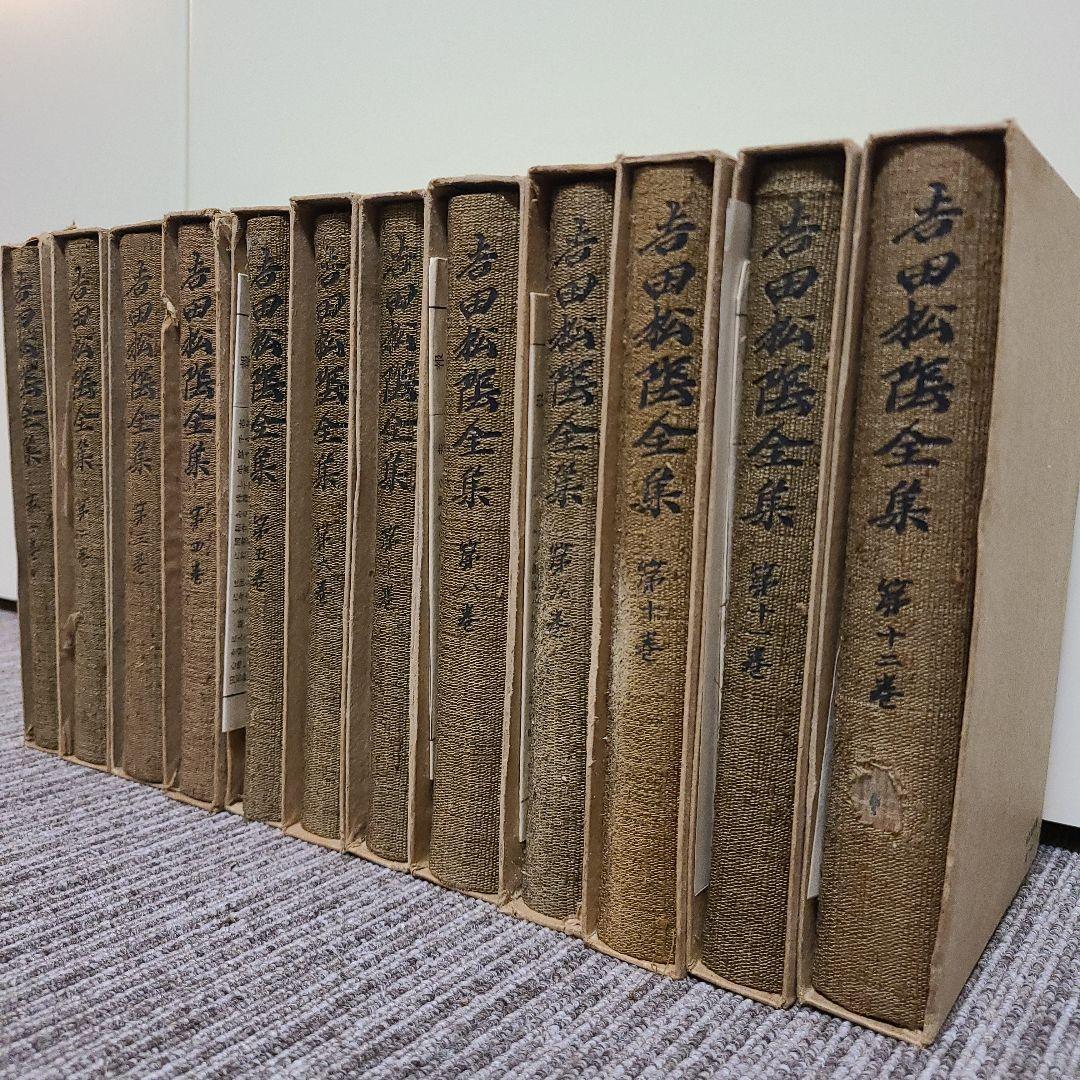 吉田松陰全集 第一巻
吉田松陰全集 第二巻
吉田松陰全集 第三巻
吉田松陰全集 第四巻
吉田松陰全集 第五巻
吉田松陰全集 第六巻
吉田松陰全集 第七巻
吉田松陰全集 第八巻
吉田松陰全集 第九巻
吉田松陰全集 第十巻
吉田松陰全集 第十一巻
吉田松陰全集 第十二巻